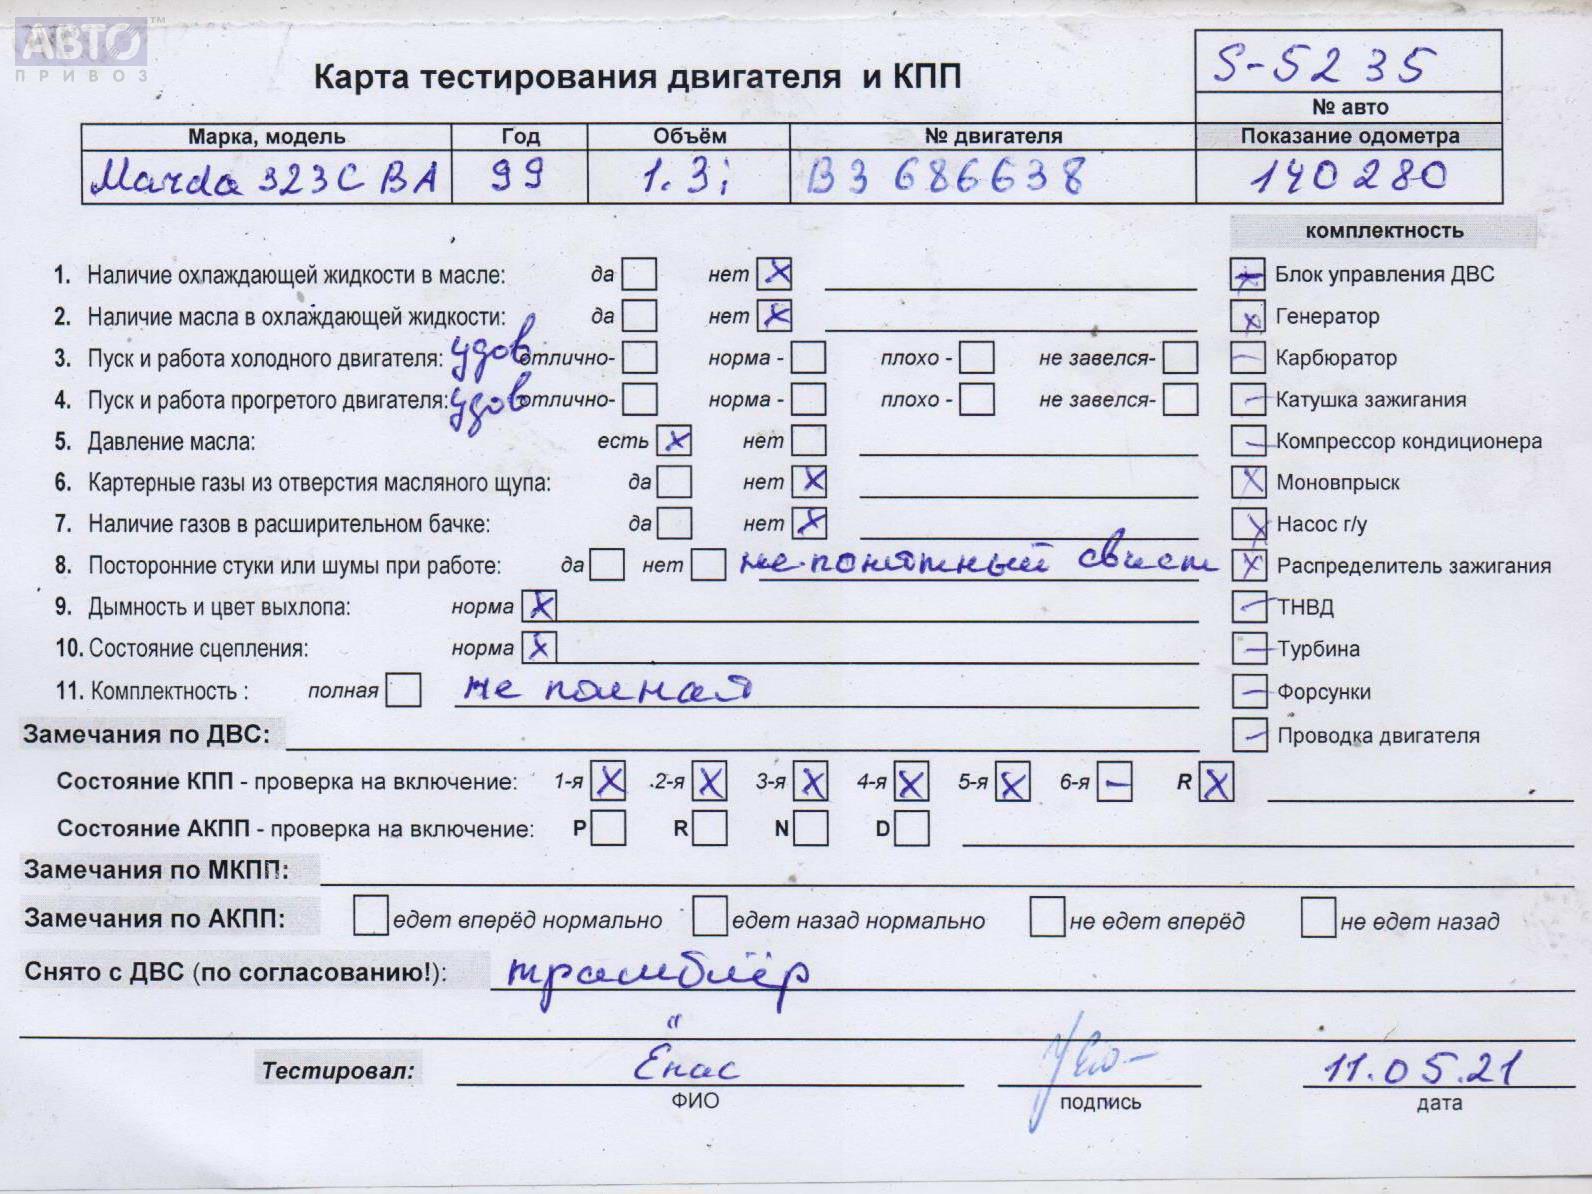 АВТО ™
ПРИВОЗ
Карта тестирования двигателя и КПП
S-5235
№ авто
Марка, модель Год Объём № двигателя Показание одометра
Mazda 323C BA 99 1.3i B3 686638 140280
комплектность
1. Наличие охлаждающей жидкости в масле: да нет X
Блок управления ДВС
2. Наличие масла в охлаждающей жидкости: да нет X
X Генератор
3. Пуск и работа холодного двигателя: удов отлично- норма - плохо - не завелся-
– Карбюратор
4. Пуск и работа прогретого двигателя: удов отлично- норма - плохо - не завелся-
– Катушка зажигания
5. Давление масла: есть X нет
– Компрессор кондиционера
6. Картерные газы из отверстия масляного щупа: да нет X
X Моновпрыск
7. Наличие газов в расширительном бачке: да нет X
X Насос г/у
8. Посторонние стуки или шумы при работе: да нет не понятный свист
X Распределитель зажигания
9. Дымность и цвет выхлопа: норма X
– ТНВД
10. Состояние сцепления: норма X
– Турбина
11. Комплектность : полная не полная
– Форсунки
Замечания по ДВС:
– Проводка двигателя
Состояние КПП - проверка на включение: 1-я X 2-я X 3-я X 4-я X 5-я X 6-я – R X
Состояние АКПП - проверка на включение: P R N D
Замечания по МКПП:
Замечания по АКПП: едет вперёд нормально едет назад нормально не едет вперёд не едет назад
Снято с ДВС (по согласованию!): трамблёр
Тестировал: Енас 11.05.21
ФИО подпись дата